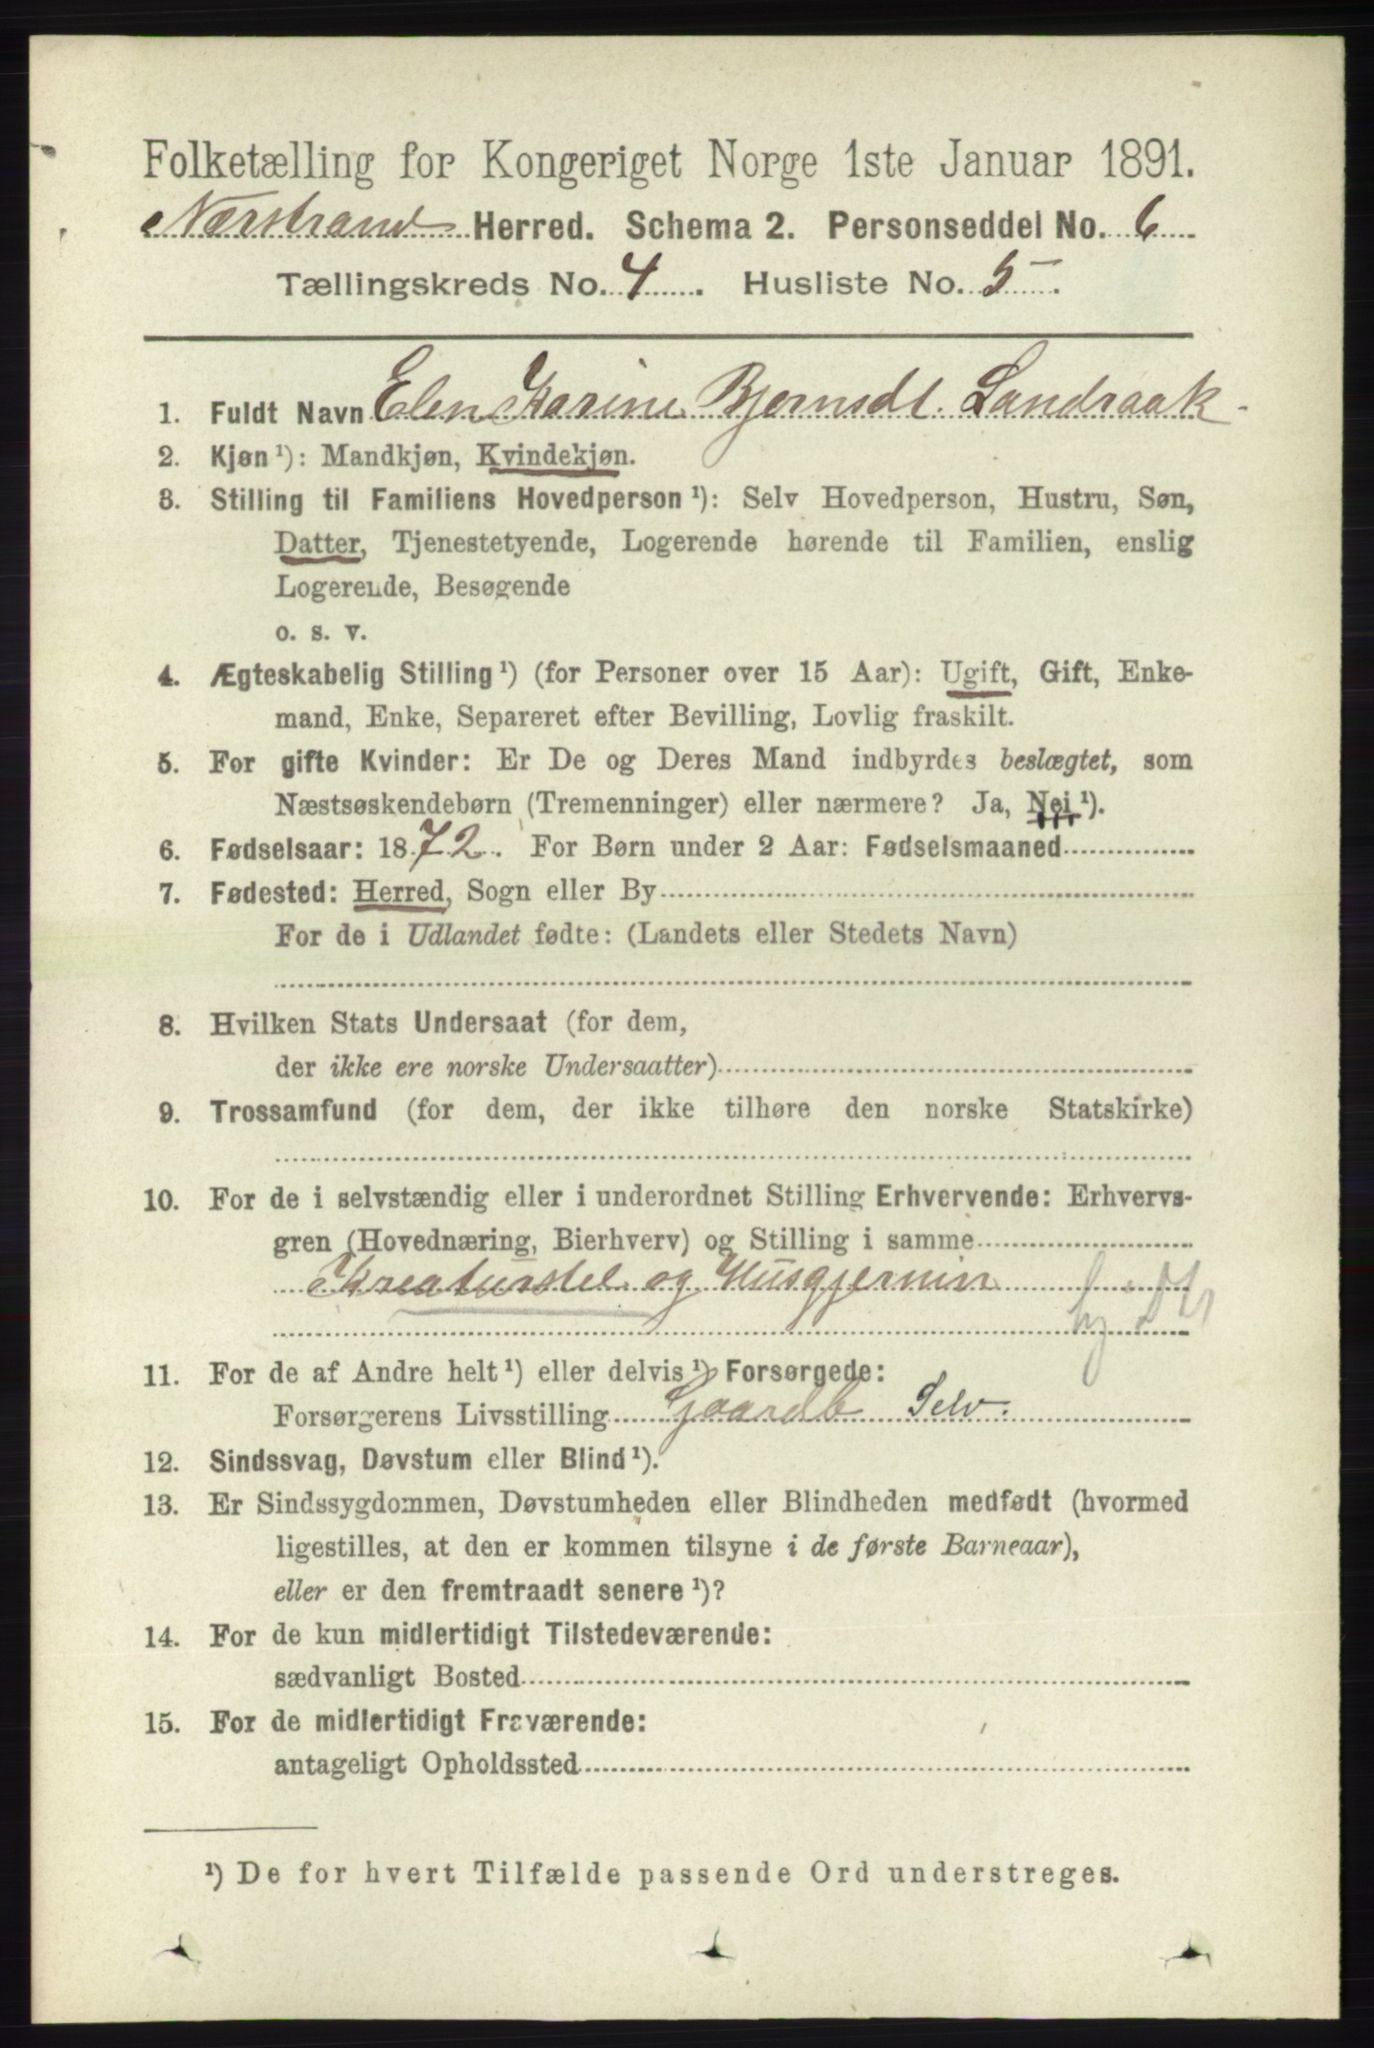 Folketælling for Kongeriget Norge 1ste Januar 1891.
Nærstrand Herred. Schema 2. Personseddel No. 6
Tællingskreds No. 4. Husliste No. 5.
1. Fuldt Navn Elen Karine Bjørnsdt. Sandraak
2. Kjøn ¹): Mandkjøn, Kvindekjøn.
3. Stilling til Familiens Hovedperson ¹): Selv Hovedperson, Hustru, Søn,
Datter, Tjenestetyende, Logerende hørende til Familien, enslig
Logerende, Besøgende
o. s. v.
4. Ægteskabelig Stilling ¹) (for Personer over 15 Aar): Ugift, Gift, Enke-
mand, Enke, Separeret efter Bevilling, Lovlig fraskilt.
5. For gifte Kvinder: Er De og Deres Mand indbyrdes beslægtet, som
Næstsøskendebørn (Tremenninger) eller nærmere? Ja, Nei ¹).
6. Fødselsaar: 1872. For Børn under 2 Aar: Fødselsmaaned
7. Fødested: Herred, Sogn eller By
For de i Udlandet fødte: (Landets eller Stedets Navn)
8. Hvilken Stats Undersaat (for dem,
der ikke ere norske Undersaatter)
9. Trossamfund (for dem, der ikke tilhøre den norske Statskirke)
10. For de i selvstændig eller i underordnet Stilling Erhvervende: Erhvervs-
gren (Hovednæring, Bierhverv) og Stilling i samme
Kreaturstel og Husgjernin
11. For de af Andre helt ¹) eller delvis ¹) Forsørgede:
Forsørgerens Livsstilling Gaardb Selv.
12. Sindssvag, Døvstum eller Blind ¹).
13. Er Sindssygdommen, Døvstumheden eller Blindheden medfødt (hvormed
ligestilles, at den er kommen tilsyne i de første Barneaar),
eller er den fremtraadt senere ¹)?
14. For de kun midlertidigt Tilstedeværende:
sædvanligt Bosted
15. For de midlertidigt Fraværende:
antageligt Opholdssted
¹) De for hvert Tilfælde passende Ord understreges.